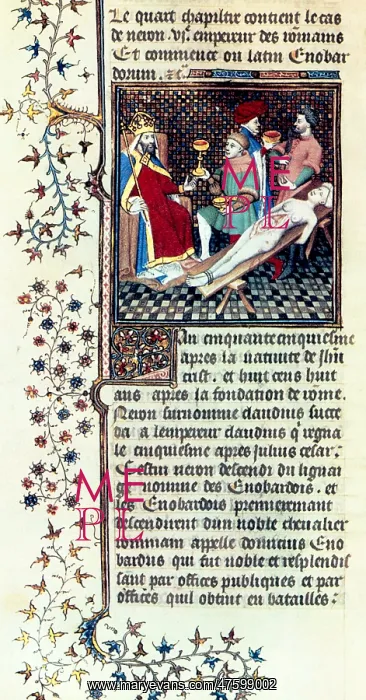 Le quart chapiltre contient le cas
de neron .vjͤ. empereur des rōmains
Et commence ou latin Enobar
dorum . ⁊c̄.
ME
PL
An cinquantecinquiesme
apres la natiuite de Jhū
crist . et huit cens huit
ans apres la fondation de rome .
Neron surnomme claudius succe
da a lempereur claudius q̄ regna
le cinquiesme apres julius cesar .
Cestui neron descendi du lignaige
nomme des Enobardois . et
les Enobardois premierement
descendirent dun noble cheualier
rommain appelle domicius Eno
bardus qui fut noble et resplendis
sant par offices publiques et par
offices quil obtint en batailles :
ME
PL
www.maryevans.com/47599002